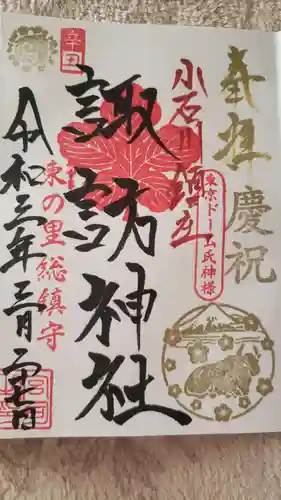 奉拝 慶祝
小石川鎮座
東京ドーム氏神様
諏訪神社
辛丑
東の里総鎮守
令和三年三月